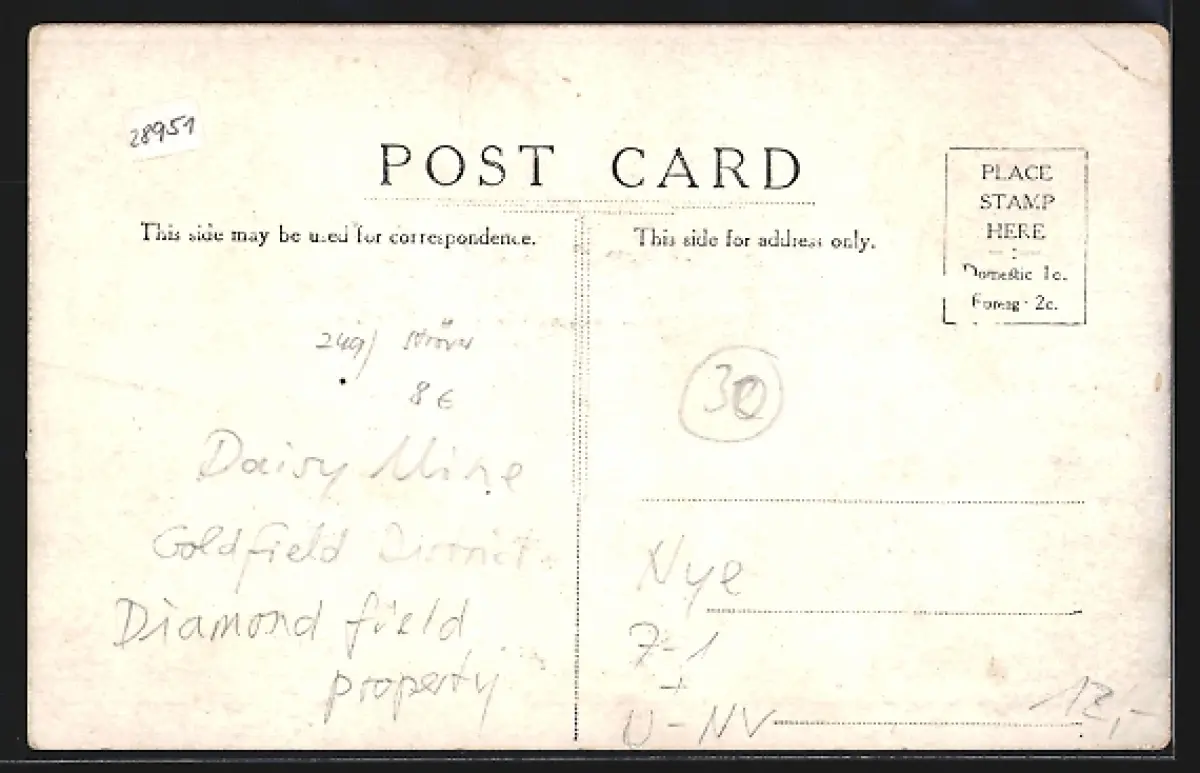 28951
POST CARD
PLACE
STAMP
HERE
Domestic 1c.
Foreign 2c.
This side may be used for correspondence.
This side for address only.
8 €
30
Daisy Mine
Goldfield District
Diamond field
property
Nye
7-1
U-NV
12,-